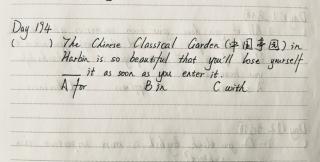 Day 194
( ) The Chinese Classical Garden (中国亭园) in
Harbin is so beautiful that you'll lose yourself
___ it as soon as you enter it.
A for B in C with